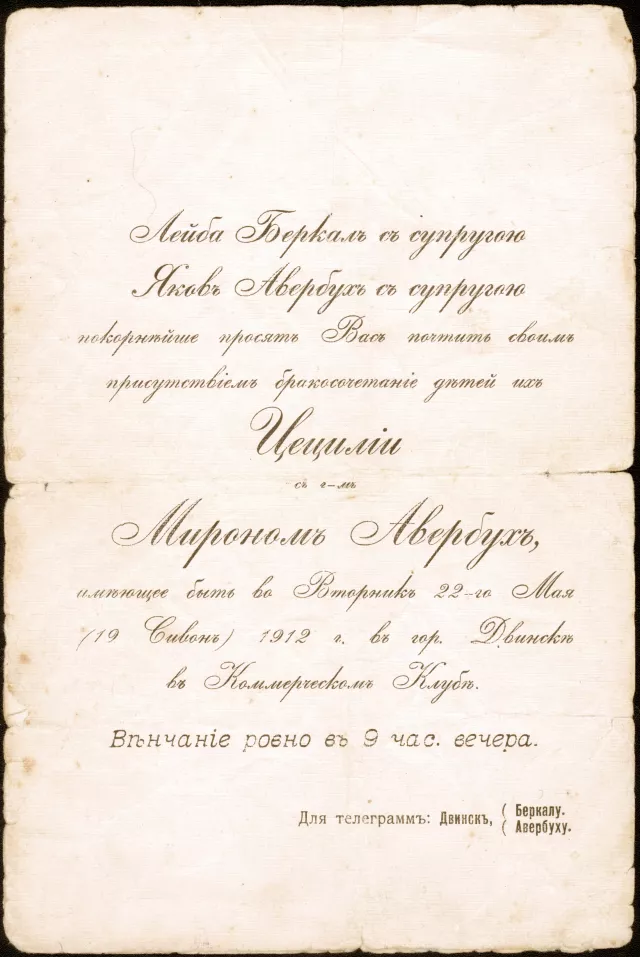 Лейба Беркалъ съ супругою
Яковъ Авербухъ съ супругою
покорнѣйше просятъ Васъ почтить своимъ
присутствіемъ бракосочетаніе дѣтей ихъ
Цециліи
съ г–мъ
Мирономъ Авербухъ,
имѣющее быть во Вторникъ 22-го Мая
(19 Сивонъ) 1912 г. въ гор. Двинскѣ
въ Коммерческомъ Клубѣ.
Вѣнчаніе ровно въ 9 час. вечера.
Для телеграммъ: Двинскъ, ( Беркалу.
( Авербуху.